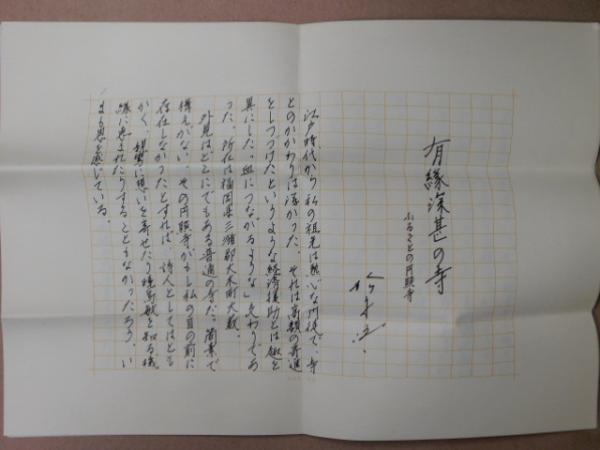 有縁深甚の寺
ふるさとの円照寺
江戸時代から私の祖先は熱心な門徒で、寺
とのかかわりは深かった。それは高額の寄進
をしつづけたというような経済援助とは趣を
異にした、血につながるような」交わりであ
った。所在は福岡県三潴郡大木町大薮。
外見はどこにでもある普通の寺だ。簡素で
構えがない。その円照寺がもし私の目の前に
存在しなかったとすれば、詩人としてはとも
かく、親鸞に思いを寄せたり暁烏敏を知る機
縁に恵まれたりすることもなかったろう。い
まも恩を感じている。